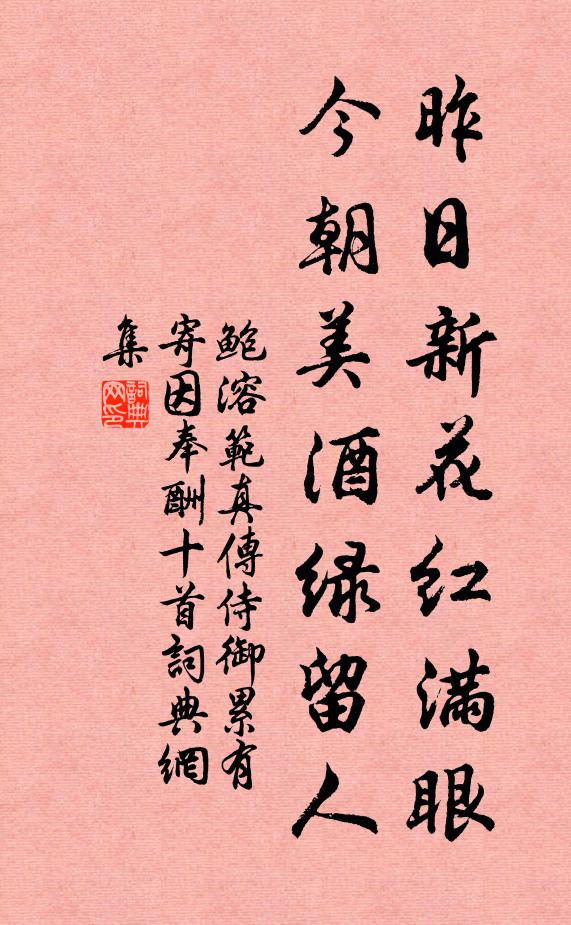 昨日新花红满眼
今朝美酒绿留人
鲍溶範真傳侍御累有
寄因奉酬十首詞典網
集
詞典
网印